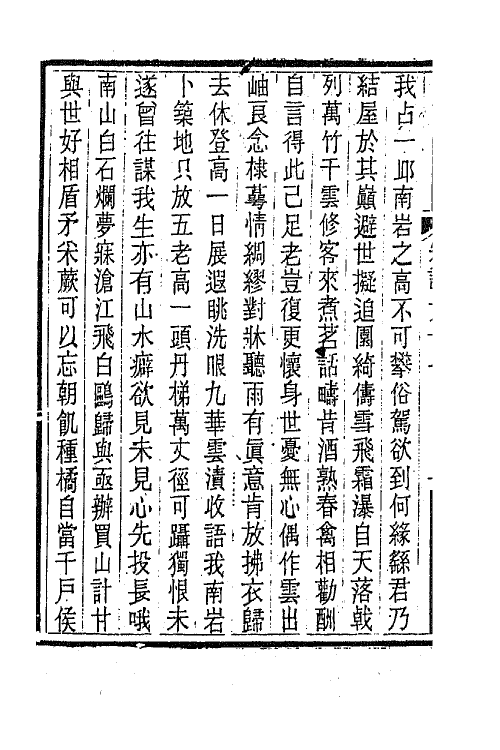 我占一丘南岩之高不可攀俗駕欲到何緣繇君乃
結屋於其巔避世擬追園綺儔雪飛霜瀑自天落戟
列萬竹干雲修客來煮茗話疇昔酒熟春禽相勸酬
自言得此已足老豈復更懷身世憂無心偶作雲出
岫艮念棣蕚情綢繆對牀聽雨有眞意肯放拂衣歸
去休登高一日展遐眺洗眼九華雲瀆收語我南岩
卜築地只放五老高一頭丹梯萬丈徑可躡獨恨未
遂曾往謀我生亦有山水癖欲見未見心先投長哦
南山白石爛夢寐滄江飛白鷗歸與亟辦買山計甘
與世好相盾矛采蕨可以忘朝飢種橘自當千戶侯